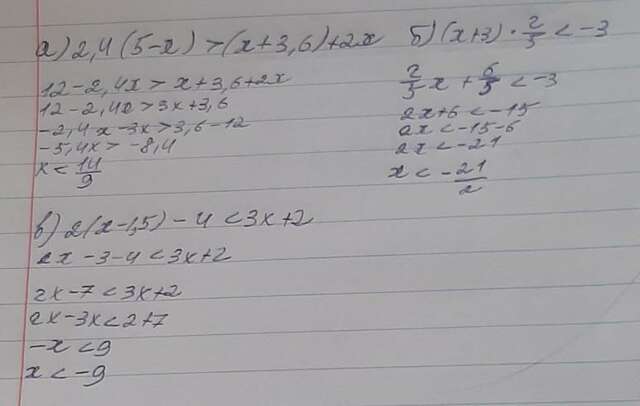 а) 2,4(5-x) > (x+3,6)+2x
12-2,4x > x+3,6+2x
12-2,4x > 3x+3,6
-2,4x-3x > 3,6-12
-5,4x > -8,4
x < 14/9
б) (x+3) · 2/5 < -3
2/5 x + 6/5 < -3
2x+6 < -15
2x < -15-6
2x < -21
x < -21/2
в) 2(x-1,5) - 4 < 3x+2
2x -3-4 < 3x+2
2x-7 < 3x+2
2x-3x < 2+7
-x < 9
x < -9